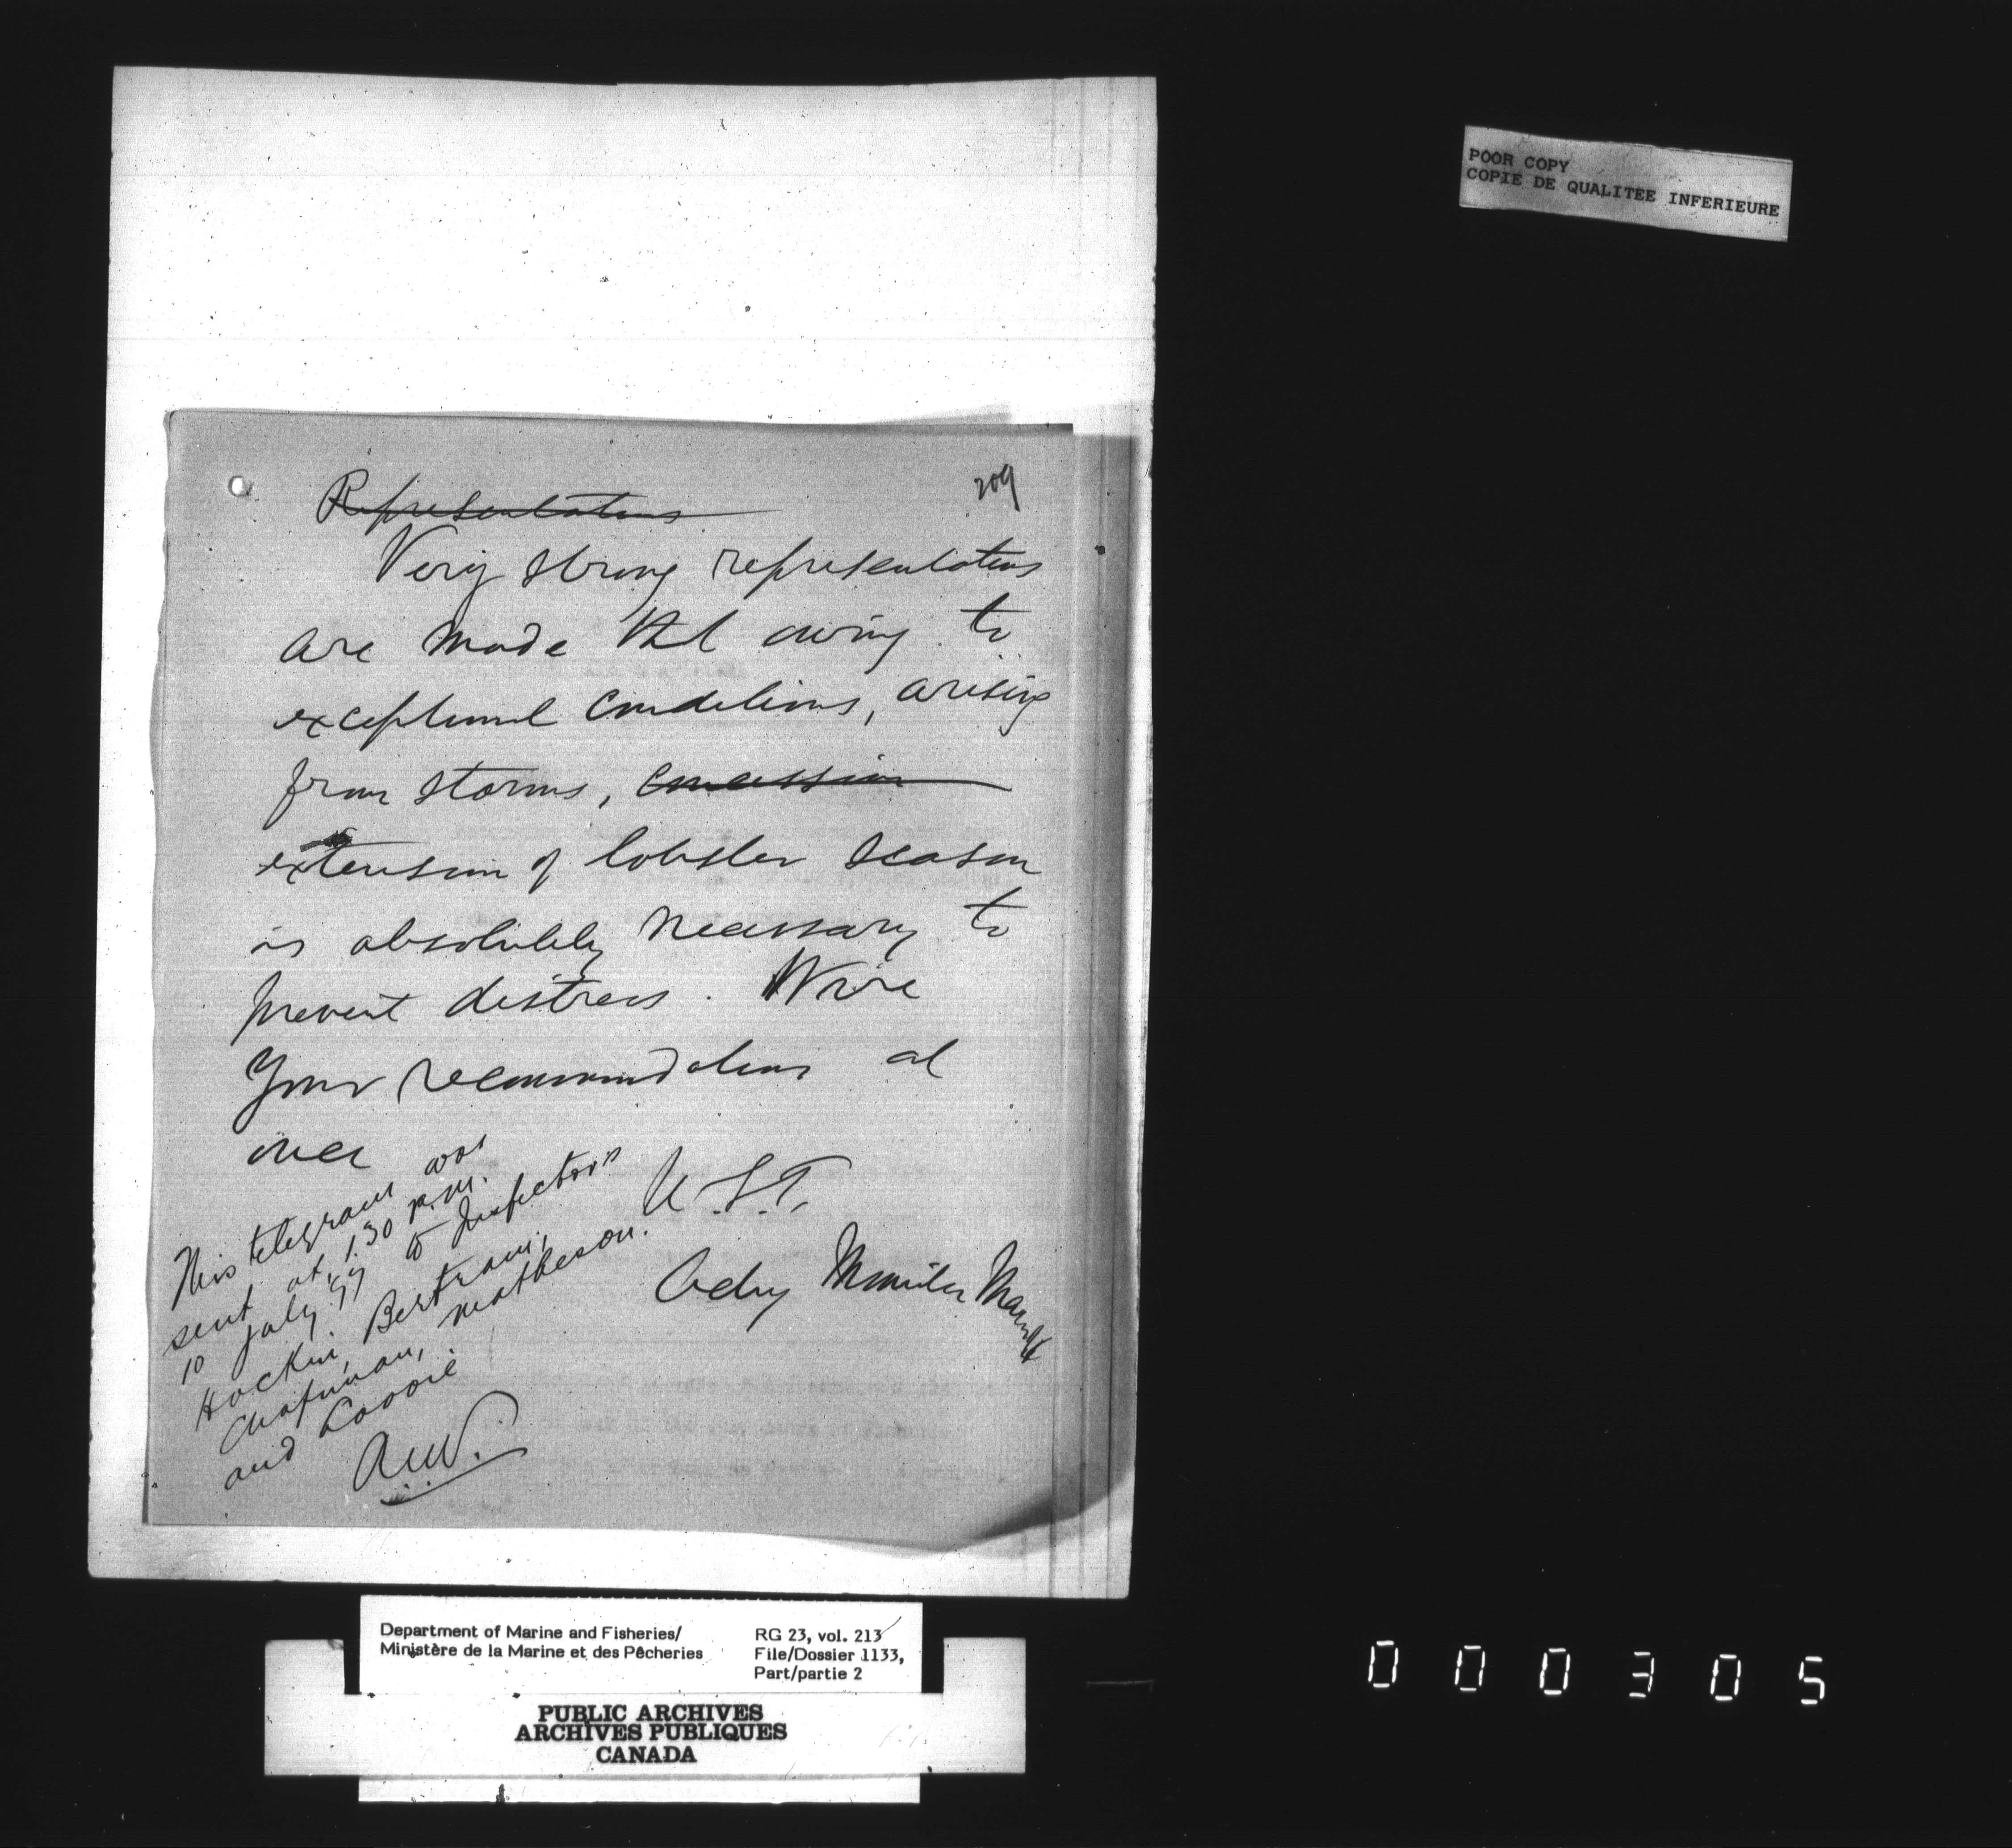 POOR COPY
COPIE DE QUALITEE INFERIEURE
209
Representations
Very strong representations
are made that owing to
exceptional conditions, arising
from storms, concession
extension of lobster season
is absolutely necessary to
prevent distress. Wire
your recommendations at
once
This telegram was
sent at 1.30 p.m.
10 July to Inspectors
Hockin, Bertram,
Chapman, Matheson.
and
A.W.
Actg Minister Marine
Department of Marine and Fisheries/
Ministère de la Marine et des Pêcheries
RG 23, vol. 213
File/Dossier 1133,
Part/partie 2
PUBLIC ARCHIVES
ARCHIVES PUBLIQUES
CANADA
000305